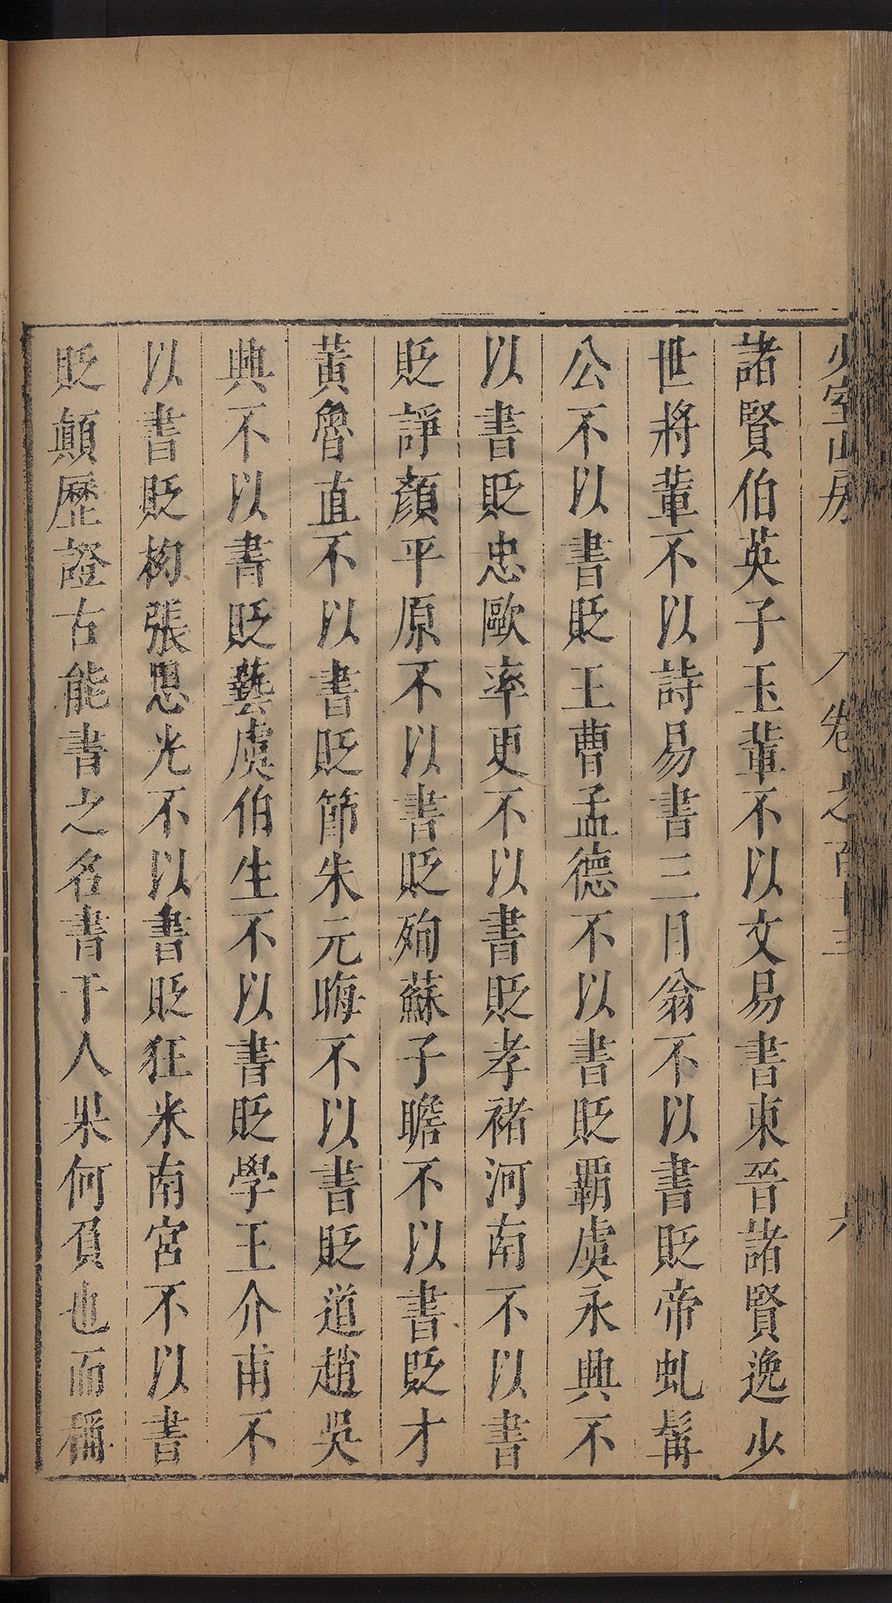 少室山房 卷之百十三 六
諸賢伯英子玉輩不以文易書東晉諸賢逸少
世將輩不以詩易書三目翁不以書貶帝虬髯
公不以書貶王曹孟德不以書貶霸虞永興不
以書貶忠歐率更不以書貶孝褚河南不以書
貶諍顏平原不以書貶殉蘇子瞻不以書貶才
黃魯直不以書貶節朱元晦不以書貶道趙吳
興不以書貶藝虞伯生不以書貶學王介甫不
以書貶拗張思光不以書貶狂米南宮不以書
貶顛歷證古能書之名書于人果何負也而稱